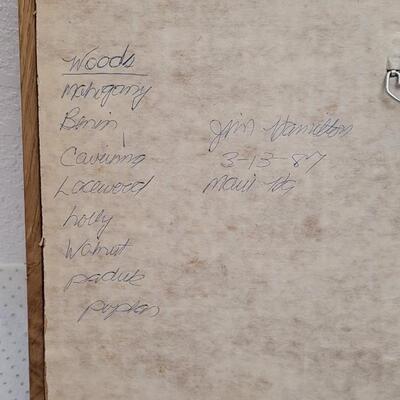 Woods
Mahogany
Benin
Lacewood
holly
Walnut
paduk
poplar
Jim Hamilton
3-13-87